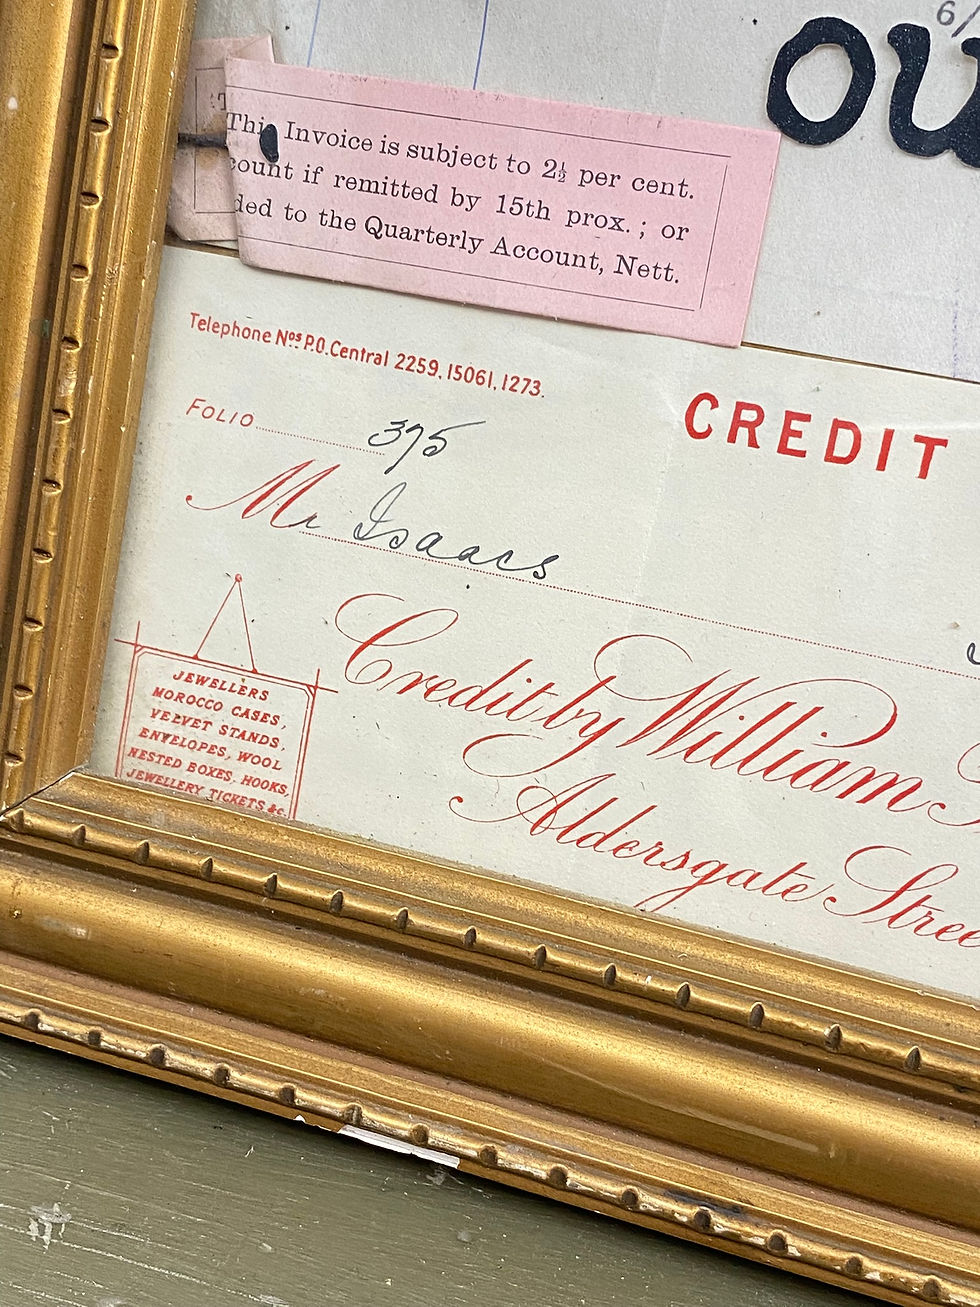 6/
ou
This Invoice is subject to 2½ per cent.
count if remitted by 15th prox.; or
ded to the Quarterly Account, Nett.
Telephone Nos P.O. Central 2259, 15061, 1273.
CREDIT
FOLIO 375
Mr Isaacs
Credit by William
Aldersgate Stree
JEWELLERS
MOROCCO CASES,
VELVET STANDS,
ENVELOPES, WOOL
NESTED BOXES, HOOKS,
JEWELLERY TICKETS &c.